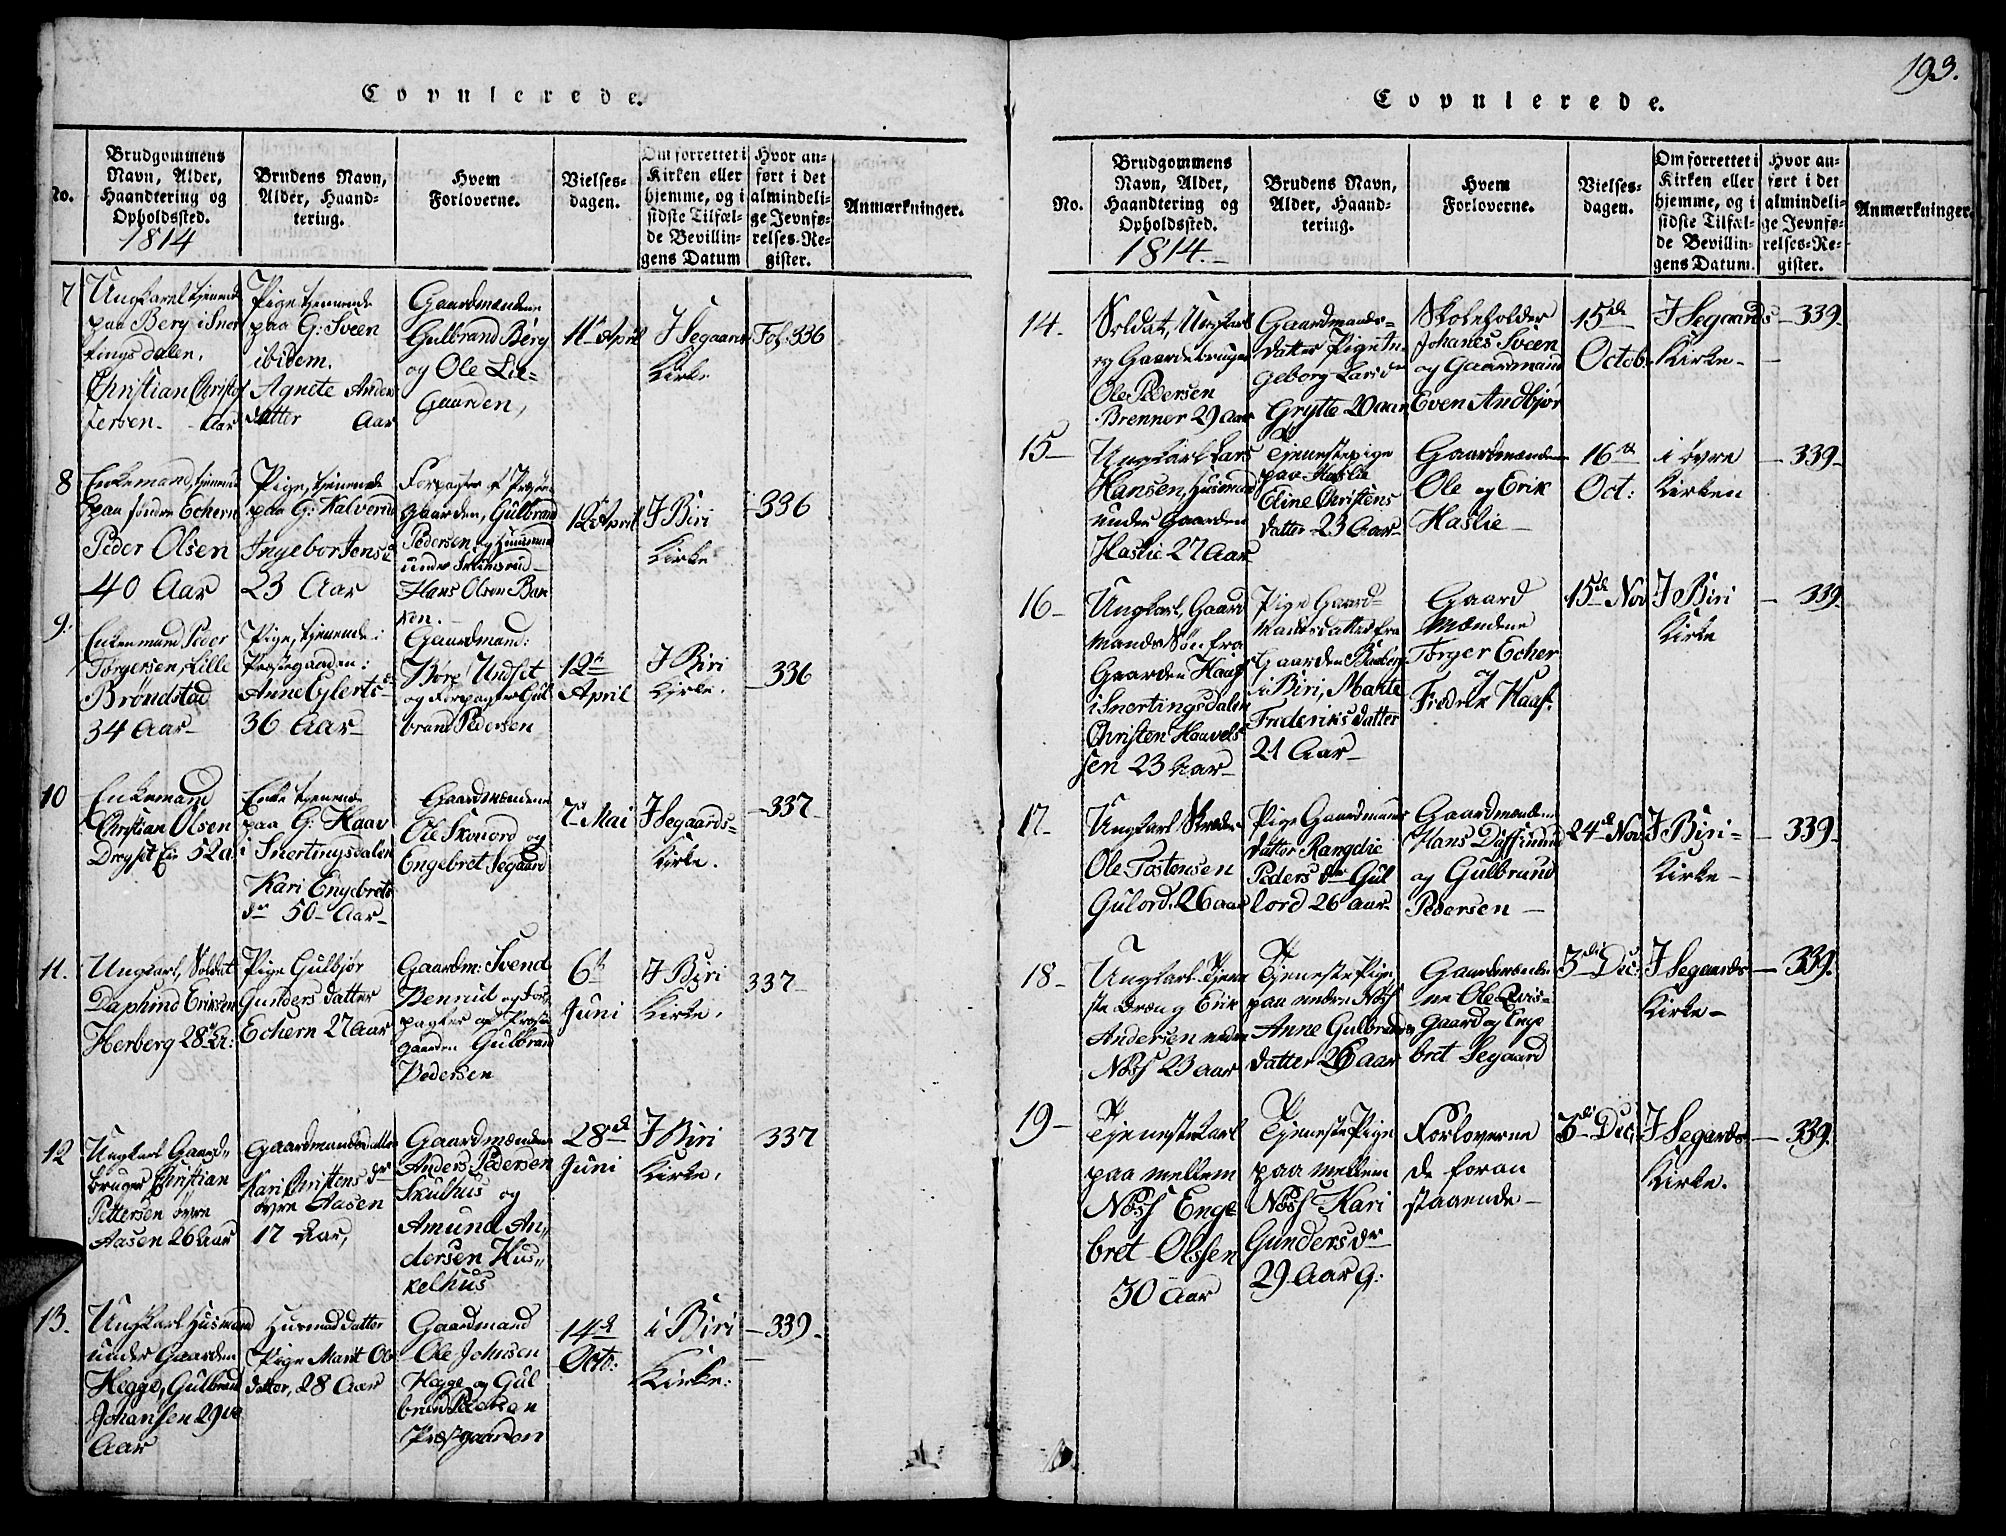 193.
Copulerede.
No.
Brudgommens
Navn, Alder,
Haandtering og
Opholdssted.
1814
Brudens Navn,
Alder, Haand-
tering.
Hvem
Forloverne.
Vielses-
dagen.
Om forrettet i
Kirken eller
hjemme, og i
sidste Tilfæl-
de Bevillin-
gens Datum
Hvor an-
ført i det
almindeli-
ge Jevnfø-
relses-Re-
gister.
Anmærkninger.
7
Ungkarl tjenende
paa Berg i Sner
tingsdalen.
Christian Christof
fersen. - Aar
Pige tjenende
paa G: Sveen
ibidem.
Agnete Anders
datter Aar
Gaardmændene
Gulbrand Berg
og Ole Lie-
Gaarden,
11te April
I Segaards
Kirke
Fol: 336
8
Enkemand, tjenende
paa søndre Echern
Peder Olsen
40 Aar
Pige, tjenende
paa G: Kalverud
Ingebor Jensd
23 Aar
Forpagter af Præste
gaarden, Gulbrand
Pedersen, og Huusmand
under
Hans Olsen Bak
ken.
12te April
I Biri
Kirke
336
9.
Enkemand Peder
Torgersen, Lille
Brøndstad
34 Aar
Pige, tjenende:
Præstegaarden:
Anne Eylertsd
36 Aar
Gaardmand:
Børe Undset
og Forpagter Gul
brand Pedersen
12te
April
I Biri
Kirke.
336
10
Enkemand
Christian Olsen
Dregset Eie 52 a.
Enke tjenende
paa G: Haav
i Snertingsdalen
Kari Engebrets
dr 50 Aar
Gaardmændene
Ole Skonord og
Engebret Segaard
7de Mai
I Segaards-
Kirke.
337
11.
Ungkarl, Soldat
Daphind Eriksen
Herberg 28 A:
Pige Gulbjør
Gunders datter
Echern 27 Aar
Gaardm: Svend
Benrud og For-
pagter af Præste
gaarden Gulbrand
Pedersen
6te
Juni
I Biri
Kirke.
337
12
Ungkarl Gaard-
bruger Christian
Pettersen øvre
Aasen 26 Aar
Gaardmandsdatter
Kari Christens dr
øvre Aasen
17 Aar,
Gaardmændene
Anders Pedersen
Skulhus og
Amund An-
dersen Hus-
kelhus
28de
Juni
I Biri
Kirke,
337
13.
Ungkarl Husmand
under Gaarden
Hegge, Gulbrand
Johansen 29
Aar
Husmands datter
Pige Marit Ols
datter, 28 Aar
Gaardmand
Ole Johnsen
Hegge og Gul
brand Pedersen
Præstgaarden
14de
Octo:
i Biri
Kirke:
339.
Copulerede.
No.
Brudgommens
Navn, Alder,
Haandtering og
Opholdssted.
1814.
Brudens Navn,
Alder, Haand-
tering.
Hvem
Forloverne.
Vielses-
dagen.
Om forrettet i
Kirken eller
hjemme, og i
sidste Tilfæl-
de Bevillin-
gens Datum.
Hvor an-
ført i det
almindeli-
ge Jevnfø-
relses-Re-
gister.
Anmærkninger.
14.
Soldat, Ungkarl
og Gaardbruger
Ole Pedersen
Brenner 29 Aar
Gaardmands-
datter Pige In-
geborg Larsdr
Grytte 20 aar
Skoleholder
Johanes Sveen
og Gaardmand
Even Andbjør
15de
Octob.
I Segaards
Kirke
339
15
Ungkarl Lars
Hansen, Husmand
under Gaarden
Haslie 27 Aar
Tjenestepige
paa Haslie
Eline Christens
datter 23 Aar
Gaardmændene
Ole og Erik
Haslie
16de
Oct:
i øvre
Kirken
339
16
Ungkarl, Gaard
mands Søn fra
Gaarden Haaf
i Snertingsdalen
Christen Haavels
sen 23 Aar
Pige Gaard-
mandsdatter fra
Gaarden
i Biri, Marte
Frederiks datter
21 Aar
Gaard
Mændene
Torger Echer
og
Fredrik Haaf.
15de Nov
I Biri
Kirke
339
17
Ungkarl Skræder
Ole Tostensen
Gulord 26 aar
Pige Gaardmans
datter Rangdie
Peders dr Gul
lord 26 aar
Gaardmændene
Hans Daffinrud
og Gulbrand
Pedersen
24de Nov
I Biri-
Kirke
339
18
Ungkarl Tjene
ste Dreng Erik
Andersen nedre
Næss 23 Aar
Tjeneste Pige
paa nedre Næss
Anne Gulbrands
datter 26 Aar
Gaardmænde
ne Ole Qvis-
gaard og Enge
bret Segaard
3die Dec:
I Segaards
Kirke
339.
19
Tjenestekarl
paa mellem
Næss Enge
bret Olssen
30 Aar
Tjeneste Pige
paa mellem
Næss Kari
Gunders dr
29 Aar g:
Forloverne
de foran
staaende
3die Dec,
I Segards
Kirke.
339.